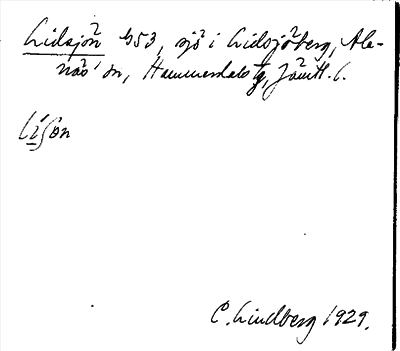 Lidsjön 453, sjö i Lidsjöberg, Ale-
näs sn, Hammerdals tg, Jämtl. l.
C. Lindberg 1929.